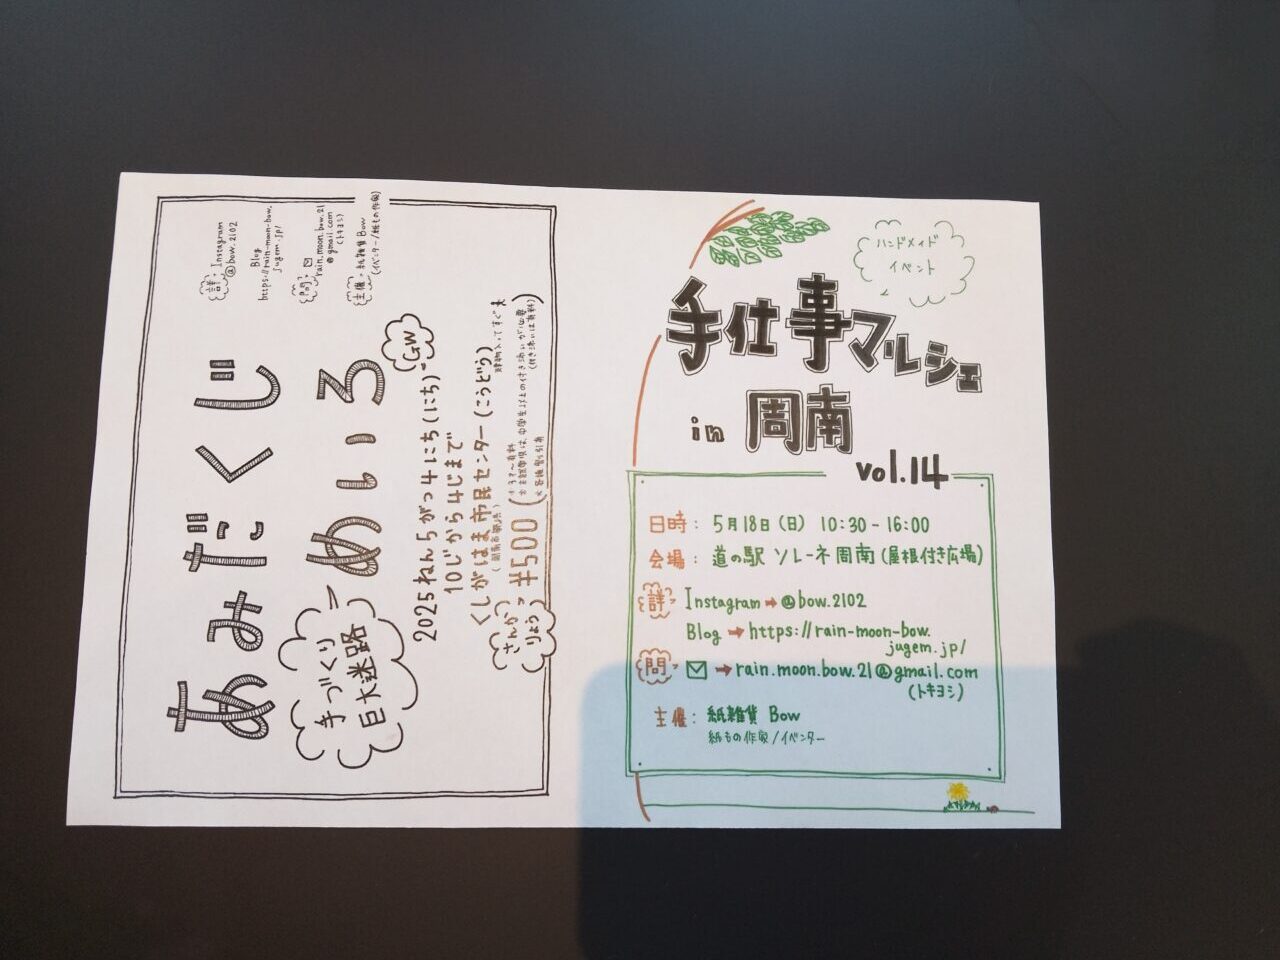 あみだくじ
めいろ
手づくり
巨大迷路
2025ねん5がつ4にち(にち)
GW
10じから4じまで
くしがはま市民センター(こうどう)
さんか
りょう
¥500
詳: Instagram
@bow.2102
Blog
https://rain-moon-bow.
jugem.jp/
問:
rain.moon.bow.21
@gmail.com
(トキヨシ)
主催: 紙雑貨 Bow
(イベンター/紙もの作家)
ハンドメイド
イベント
手仕事マルシェ
in 周南
vol.14
日時: 5月18日(日) 10:30-16:00
会場: 道の駅 ソレーネ周南(屋根付き広場)
詳 Instagram→@bow.2102
Blog→https://rain-moon-bow.
jugem.jp/
問 →rain.moon.bow.21@gmail.com
(トキヨシ)
主催: 紙雑貨 Bow
紙もの作家/イベンター